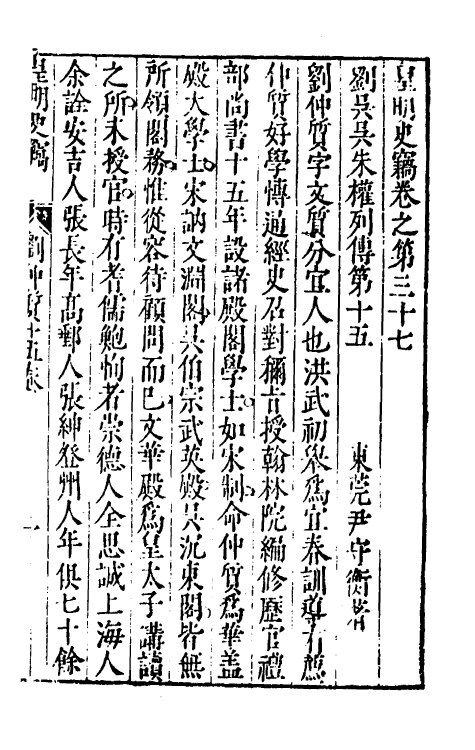 皇明史竊卷之第三十七
劉吳吳朱權列傳第十五
東莞尹守衡著
劉仲質字文質分宜人也洪武初舉爲宜春訓導有薦
仲質好學愽通經史召對稱吉授翰林院編修歷官禮
部尚書十五年設諸殿閣學士如宋制命仲質爲華盖
殿大學士宋訥文淵閣吳伯宗武英殿吳沉東閣皆無
所領閣務惟從容待顧問而已文華殿爲皇太子講讀
之所未授官時有耆儒鮑恂者崇德人全思誠上海人
余詮安吉人張長年高郵人張紳登州人年俱七十餘
皇明史竊
劉仲質十五卷
一